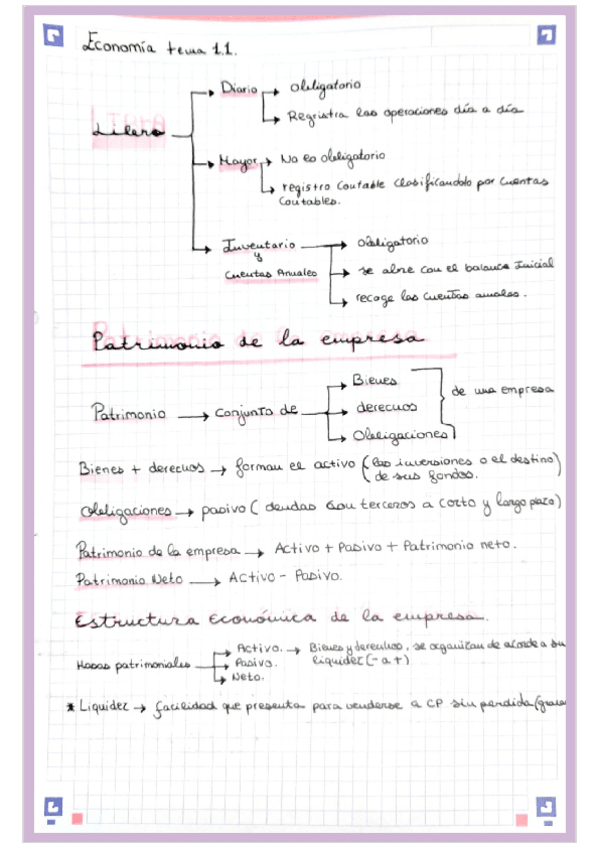 Economía tema 1.1.
Diario → obligatorio
→ Registra las operaciones día a día
Libros
Mayor → No es obligatorio
→ registro contable clasificandolo por cuentas
contables.
Inventario → obligatorio
y
Cuentas Anuales → se abre con el balance inicial
→ recoge las cuentas anuales.
Patrimonio de la empresa
Patrimonio → conjunto de → Bienes
→ derechos
→ Obligaciones
de una empresa
Bienes + derechos → forman el activo (las inversiones o el destino)
de sus fondos.
Obligaciones → pasivo (deudas con terceros a corto y largo plazo)
Patrimonio de la empresa → Activo + Pasivo + Patrimonio neto.
Patrimonio Neto → Activo - Pasivo.
Estructura económica de la empresa.
→ Activo. → Bienes y derechos, se organizan de acorde a su
liquidez (- a +)
Masas patrimoniales → Pasivo.
→ Neto.
* Liquidez → facilidad que presenta para venderse a CP sin perdida